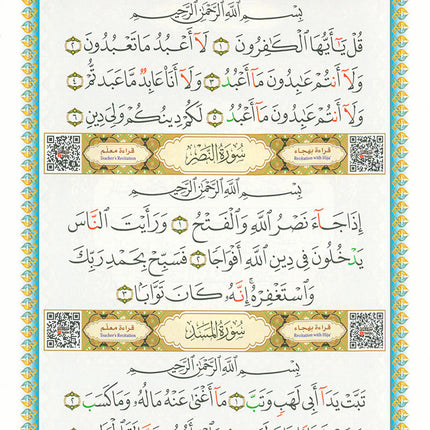 بِسْمِ ٱللَّهِ ٱلرَّحْمَٰنِ ٱلرَّحِيمِ
قُلْ يَٰٓأَيُّهَا ٱلْكَٰفِرُونَ ١ لَآ أَعْبُدُ مَا تَعْبُدُونَ ٢
وَلَآ أَنتُمْ عَٰبِدُونَ مَآ أَعْبُدُ ٣ وَلَآ أَنَا۠ عَابِدٌ مَّا عَبَدتُّمْ ٤
وَلَآ أَنتُمْ عَٰبِدُونَ مَآ أَعْبُدُ ٥ لَكُمْ دِينُكُمْ وَلِيَ دِينِ ٦
قراءة بهجاء
Recitation with Hijaa
سُورَةُ النَّصْرِ
قراءة معلم
Teacher's Recitation
بِسْمِ ٱللَّهِ ٱلرَّحْمَٰنِ ٱلرَّحِيمِ
إِذَا جَآءَ نَصْرُ ٱللَّهِ وَٱلْفَتْحُ ١ وَرَأَيْتَ ٱلنَّاسَ
يَدْخُلُونَ فِي دِينِ ٱللَّهِ أَفْوَاجًا ٢ فَسَبِّحْ بِحَمْدِ رَبِّكَ
وَٱسْتَغْفِرْهُ ۚ إِنَّهُۥ كَانَ تَوَّابًۢا ٣
قراءة بهجاء
Recitation with Hijaa
سُورَةُ المَسَدِ
قراءة معلم
Teacher's Recitation
بِسْمِ ٱللَّهِ ٱلرَّحْمَٰنِ ٱلرَّحِيمِ
تَبَّتْ يَدَآ أَبِي لَهَبٍ وَتَبَّ ١ مَآ أَغْنَىٰ عَنْهُ مَالُهُۥ وَمَا كَسَبَ ٢